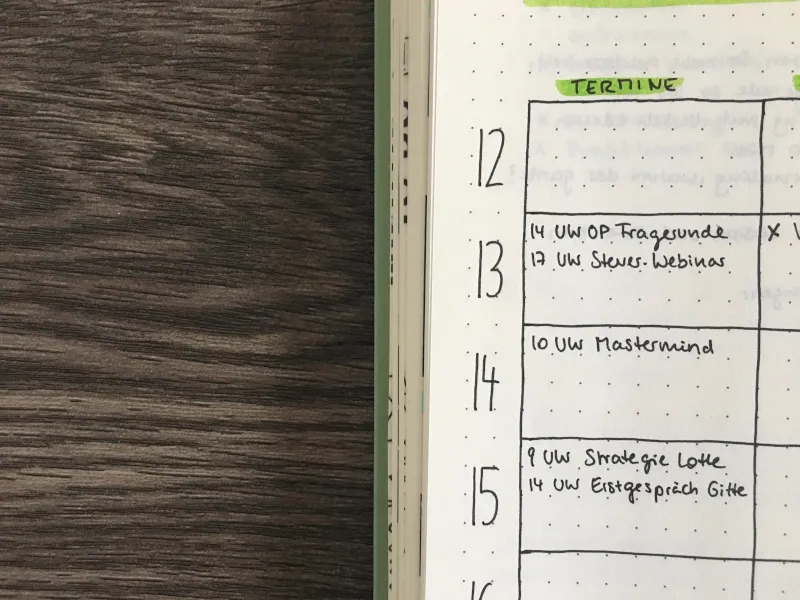 TERMINE
12
13
14 UW OP Fragerunde
17 UW Steuer-Webinar
14
10 UW Mastermind
15
9 UW Strategie Lotte
14 UW Erstgespräch Gitte